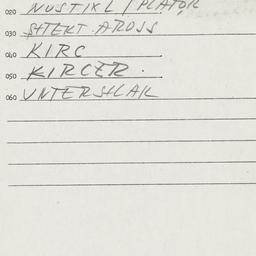 020 NUSTIKL / PLATOR
030 SHTEKT. AROSS
040 KIRC
050 KIRCER.
060 UNTERSHLAK